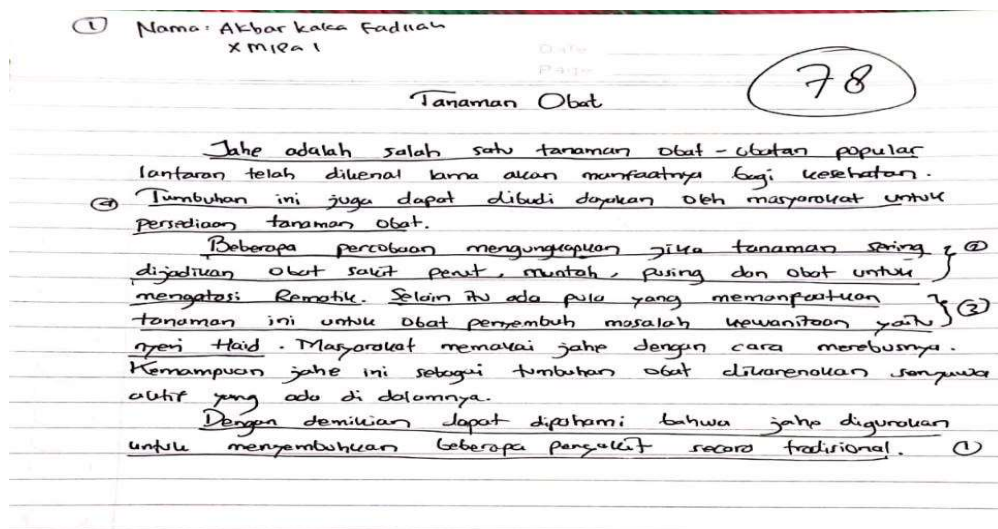 ① Nama: Akbar Kaka Fadilah
X MIPA 1
Date
Page
78
Tanaman Obat
Jahe adalah salah satu tanaman obat-obatan popular
lantaran telah dikenal lama akan manfaatnya bagi kesehatan.
④ Tumbuhan ini juga dapat dibudi dayakan oleh masyarakat untuk
persediaan tanaman obat.
Beberapa percobaan mengungkapkan jika tanaman sering ②
dijadikan obat sakit perut, muntah, pusing dan obat untuk
mengatasi Rematik. Selain itu ada pula yang memanfaatkan ③
tanaman ini untuk obat penyembuh masalah kewanitaan yaitu
nyeri Haid. Masyarakat memakai jahe dengan cara merebusnya.
Kemampuan jahe ini sebagai tumbuhan obat dikarenakan senyawa
aktif yang ada di dalamnya.
Dengan demikian dapat dipahami bahwa jahe digunakan
untuk menyembuhkan beberapa penyakit secara tradisional. ①